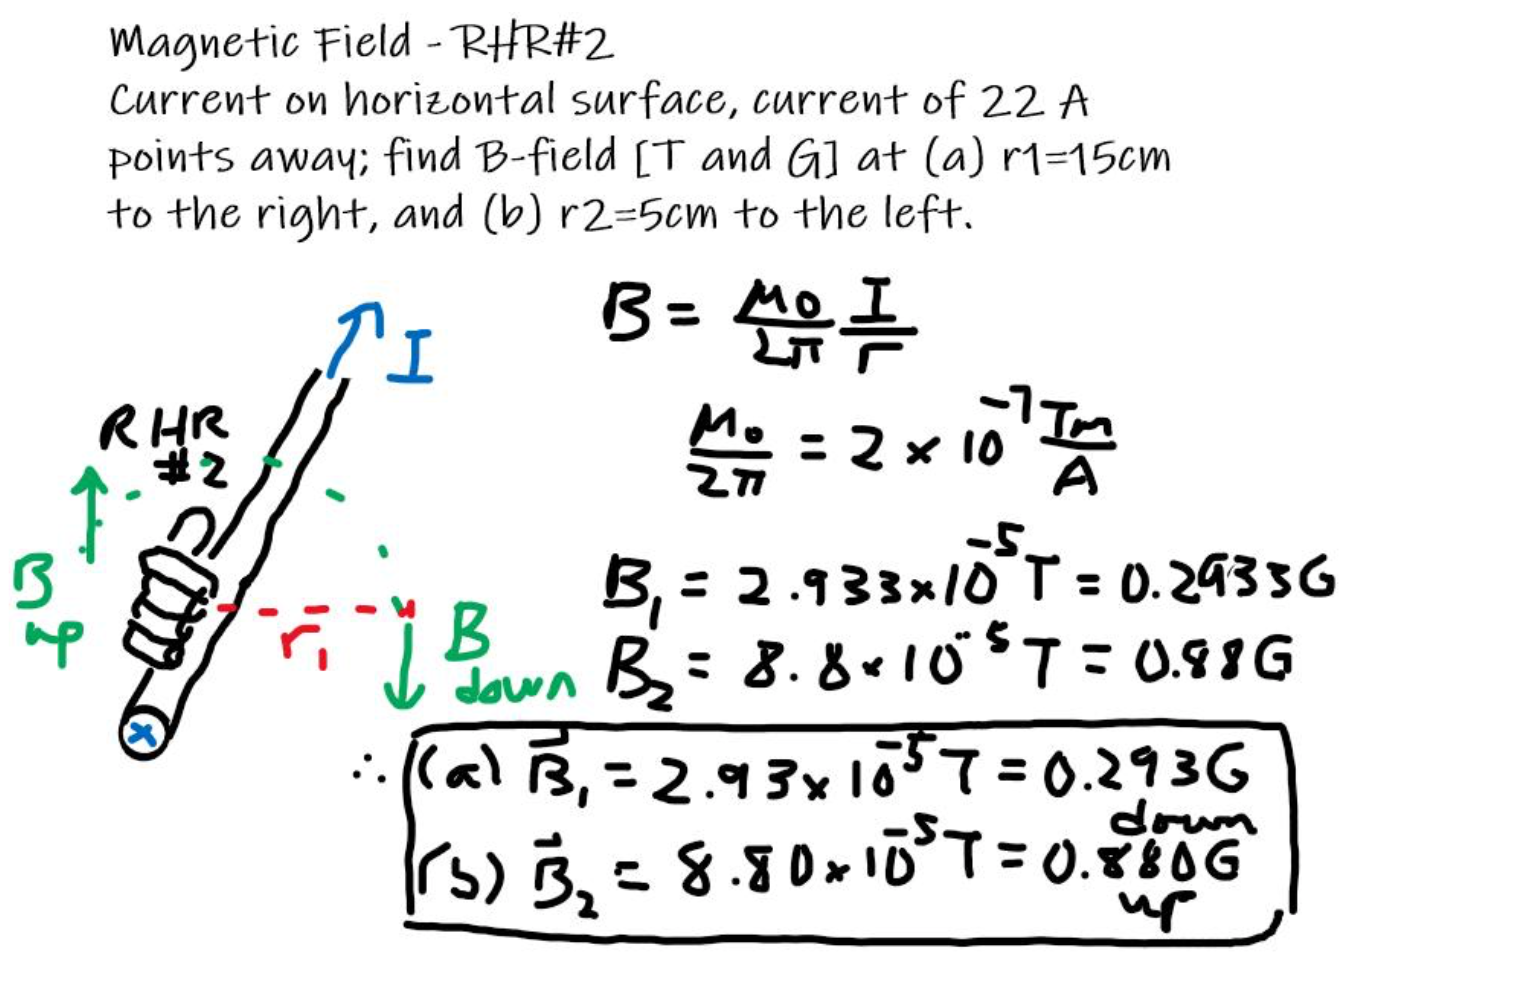 Magnetic Field - RHR#2
Current on horizontal surface, current of 22 A
points away; find B-field [T and G] at (a) r1=15cm
to the right, and (b) r2=5cm to the left.
I
B = μ0/2π I/r
RHR
#2
μ0/2π = 2 × 10^-7 Tm/A
B up
r1
B down
B1 = 2.933×10^-5 T = 0.2933G
B2 = 8.8×10^-5 T = 0.88G
×
∴ (a) B⃗1 = 2.93×10^-5 T = 0.293G down
(b) B⃗2 = 8.80×10^-5 T = 0.880G up